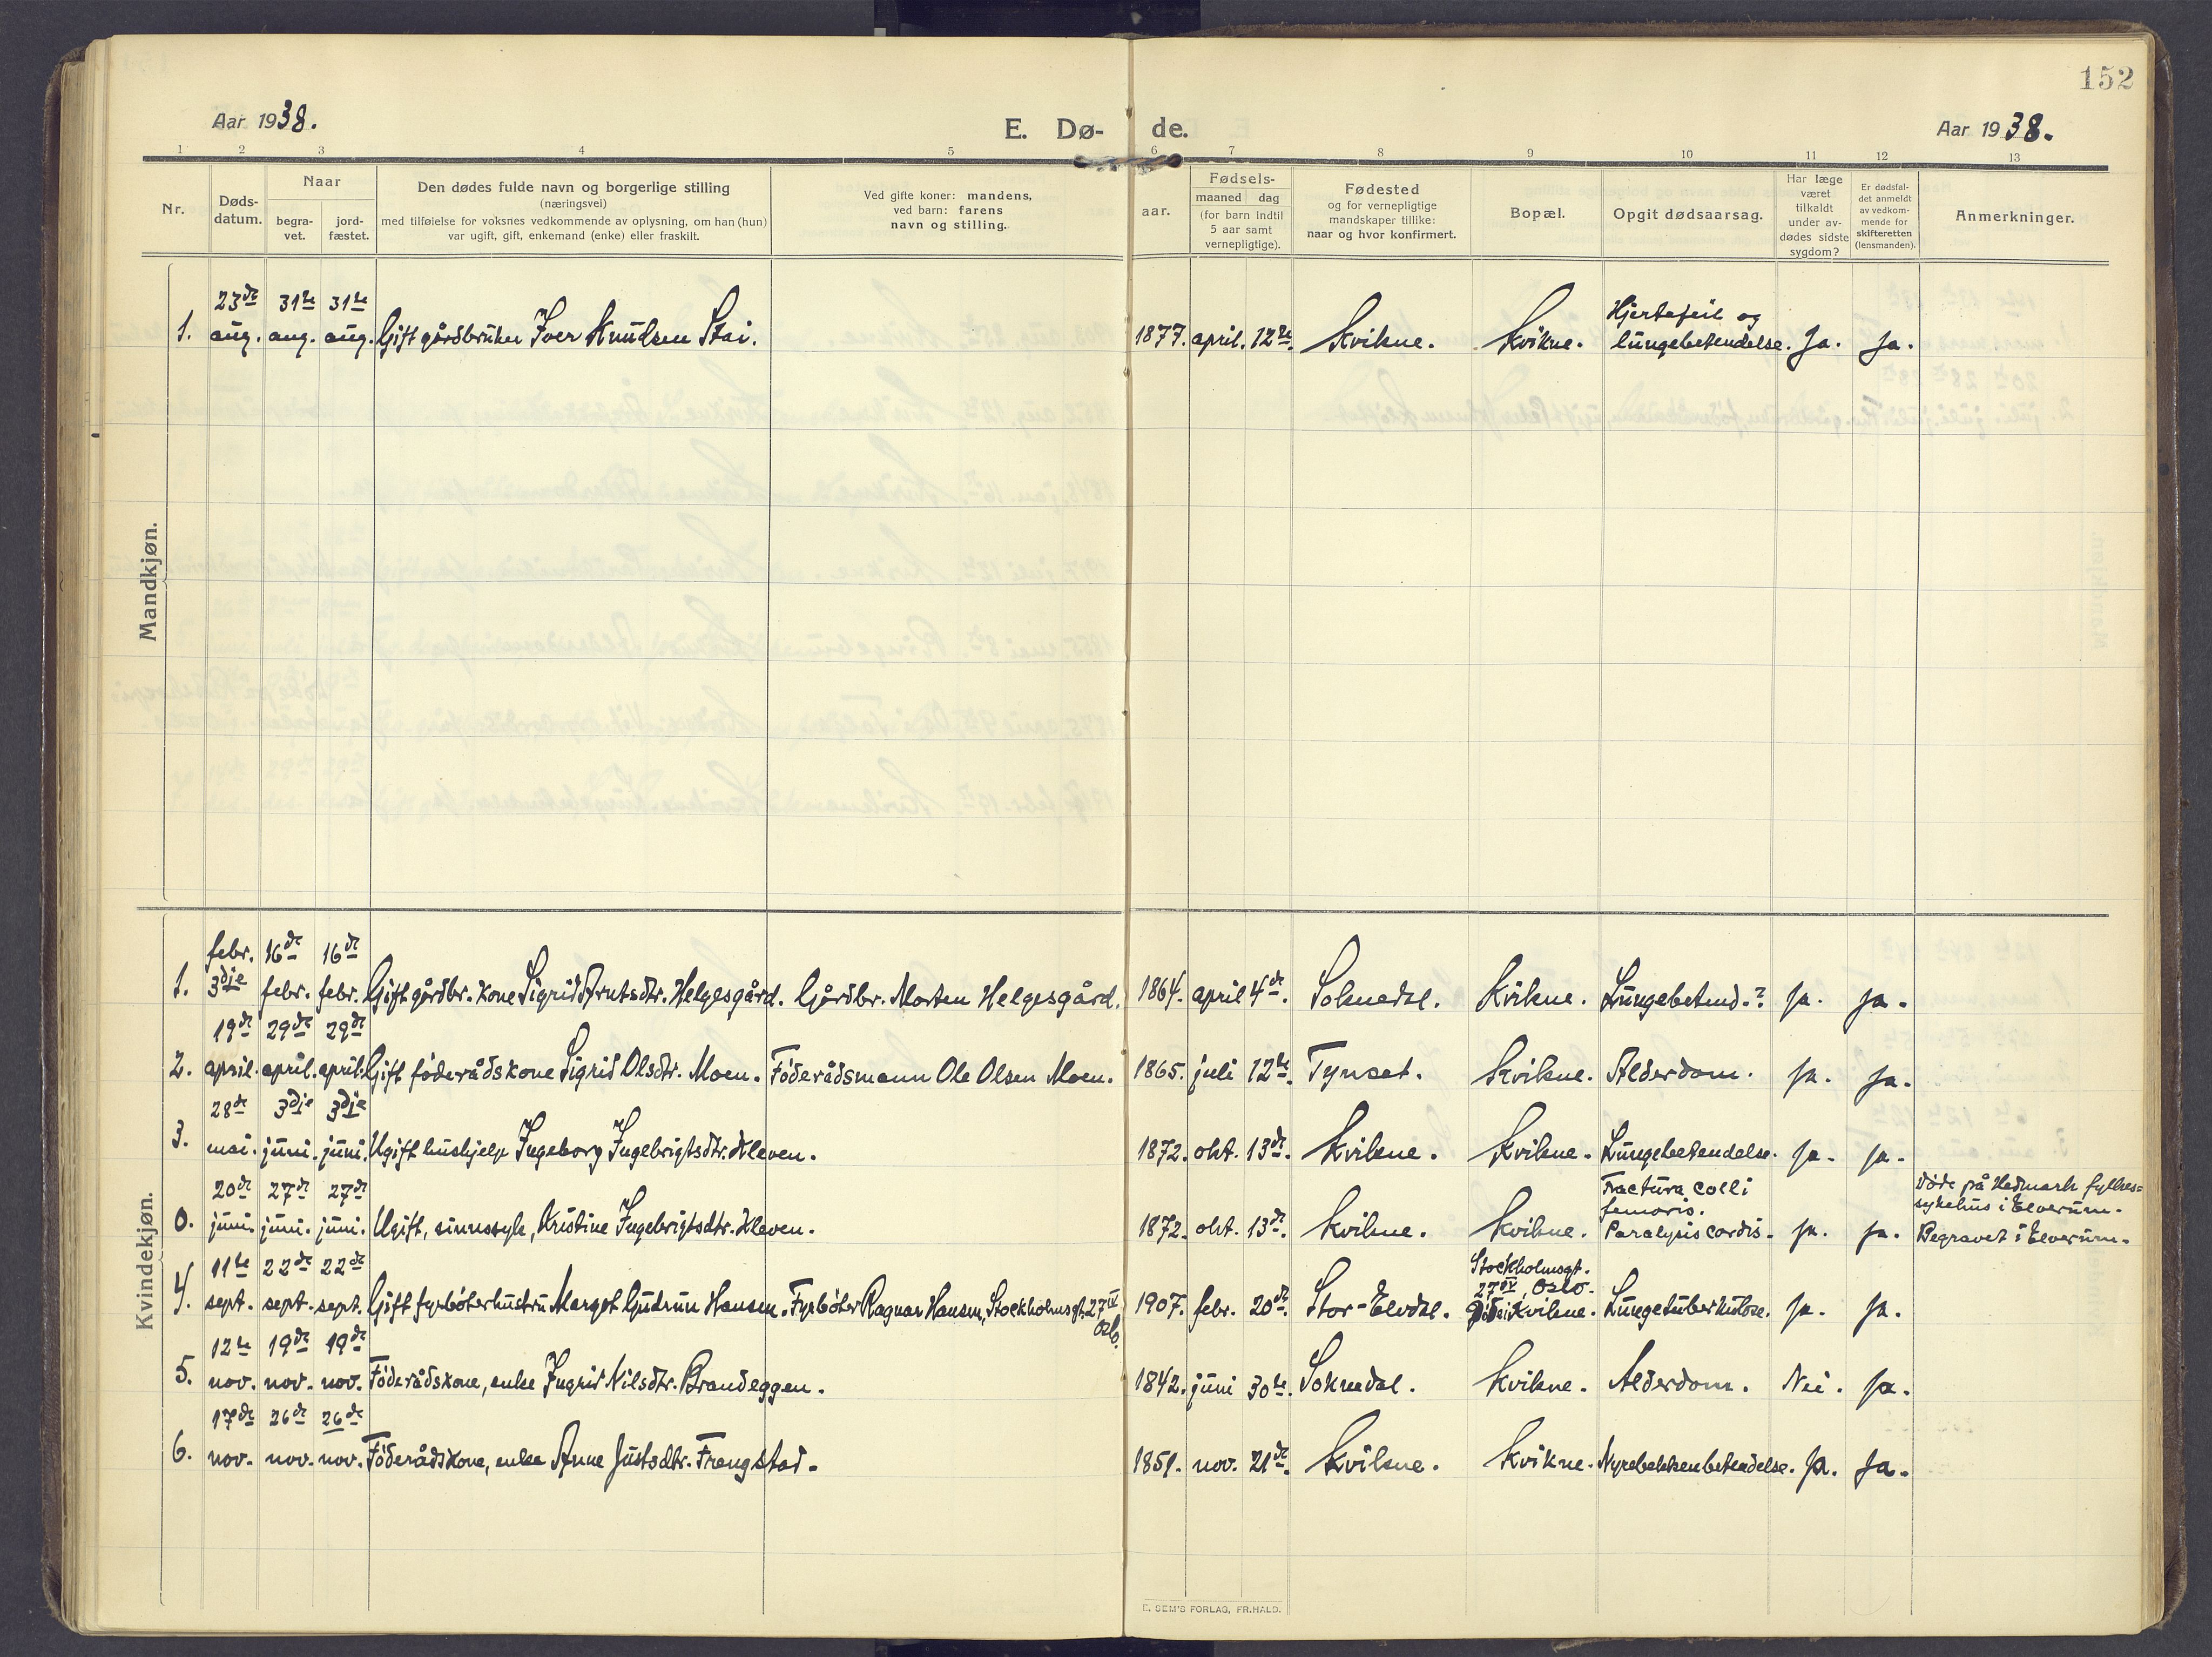 152
Aar 1938.
E. Dø- de.
Aar 1938.
1 2 3 4 5 6 7 8 9 10 11 12 13
Nr.
Døds-
datum.
Naar
begra-
vet.
jord-
fæstet.
Den dødes fulde navn og borgerlige stilling
(næringsvei)
med tilføielse for voksnes vedkommende av oplysning, om han (hun)
var ugift, gift, enkemand (enke) eller fraskilt.
Ved gifte koner: mandens,
ved barn: farens
navn og stilling.
Fødsels-
aar.
maaned dag
(for barn indtil
5 aar samt
vernepligtige).
Fødested
og for vernepligtige
mandskaper tillike:
naar og hvor konfirmert.
Bopæl.
Opgit dødsaarsag.
Har læge
været
tilkaldt
under av-
dødes sidste
sygdom?
Er dødsfal-
det anmeldt
av vedkom-
mende for
skifteretten
(lensmanden).
Anmerkninger.
Mandkjøn.
23de 31te 31te Hjertefeil og
1. aug. aug. aug. Gift gårdbruker Iver Knudsen Stai. 1877. april. 12te. Kvikne. Kvikne. lungebetendelse. Ja. Ja.
Kvindekjøn.
febr. 16de 16de
1. 3dje febr. febr. Gift gårdbr. kone Sigrid Arntsdtr. Helgesgård. Gårdbr. Morten Helgesgård. 1864. april 4de. Soknedal. Kvikne. Lungebetend.? Ja. Ja.
19de 29de 29de
2. april. april. april. Gift føderådskone Sigrid Olsdtr. Moen. Føderådsmann Ole Olsen Moen. 1865. juli 12te. Tynset. Kvikne. Alderdom. Ja. Ja.
28de 3dje 3dje
3. mai. juni. juni. Ugift hushjelp Ingeborg Ingebrigtsdtr. Kleven. 1872. okt. 13de. Kvikne. Kvikne. Lungebetendelse. Ja. Ja.
20de 27de 27de Fractura colli femoris. Døde på Hedmark fylkes=
sykehus i Elverum.
0. juni. juni. juni. Ugift, sinnssyk, Kristine Ingebrigtsdtr. Kleven. 1872. okt. 13de. Kvikne. Kvikne. Paralysis cordis. Ja. Ja. Begravet i Elverum.
11te 22de 22de Stockholmsgt.
27 IV, Oslo.
4. sept. sept. sept. Gift fyrbøterhustru Margot Gudrun Hansen. Fyrbøter Ragnar Hansen, Stockholmsgt. 27 IV 1907. febr. 20de. Stor-Elvdal. Kvikne. Lungetuberkulose. Ja. Ja.
Oslo.
12te 19de 19de
5. nov. nov. nov. Føderådskone, enke Ingrid Nilsdtr. Brandeggen. 1842. juni 30te. Soknedal. Kvikne. Alderdom. Nei. Ja.
17de 26de 26de
6. nov. nov. nov. Føderådskone, enke Anne Justsdtr. Frengstad. 1851. nov. 21de. Kvikne. Kvikne. Nyrebekkenbetendelse. Ja. Ja.
E. SEM'S FORLAG, FR.HALD.